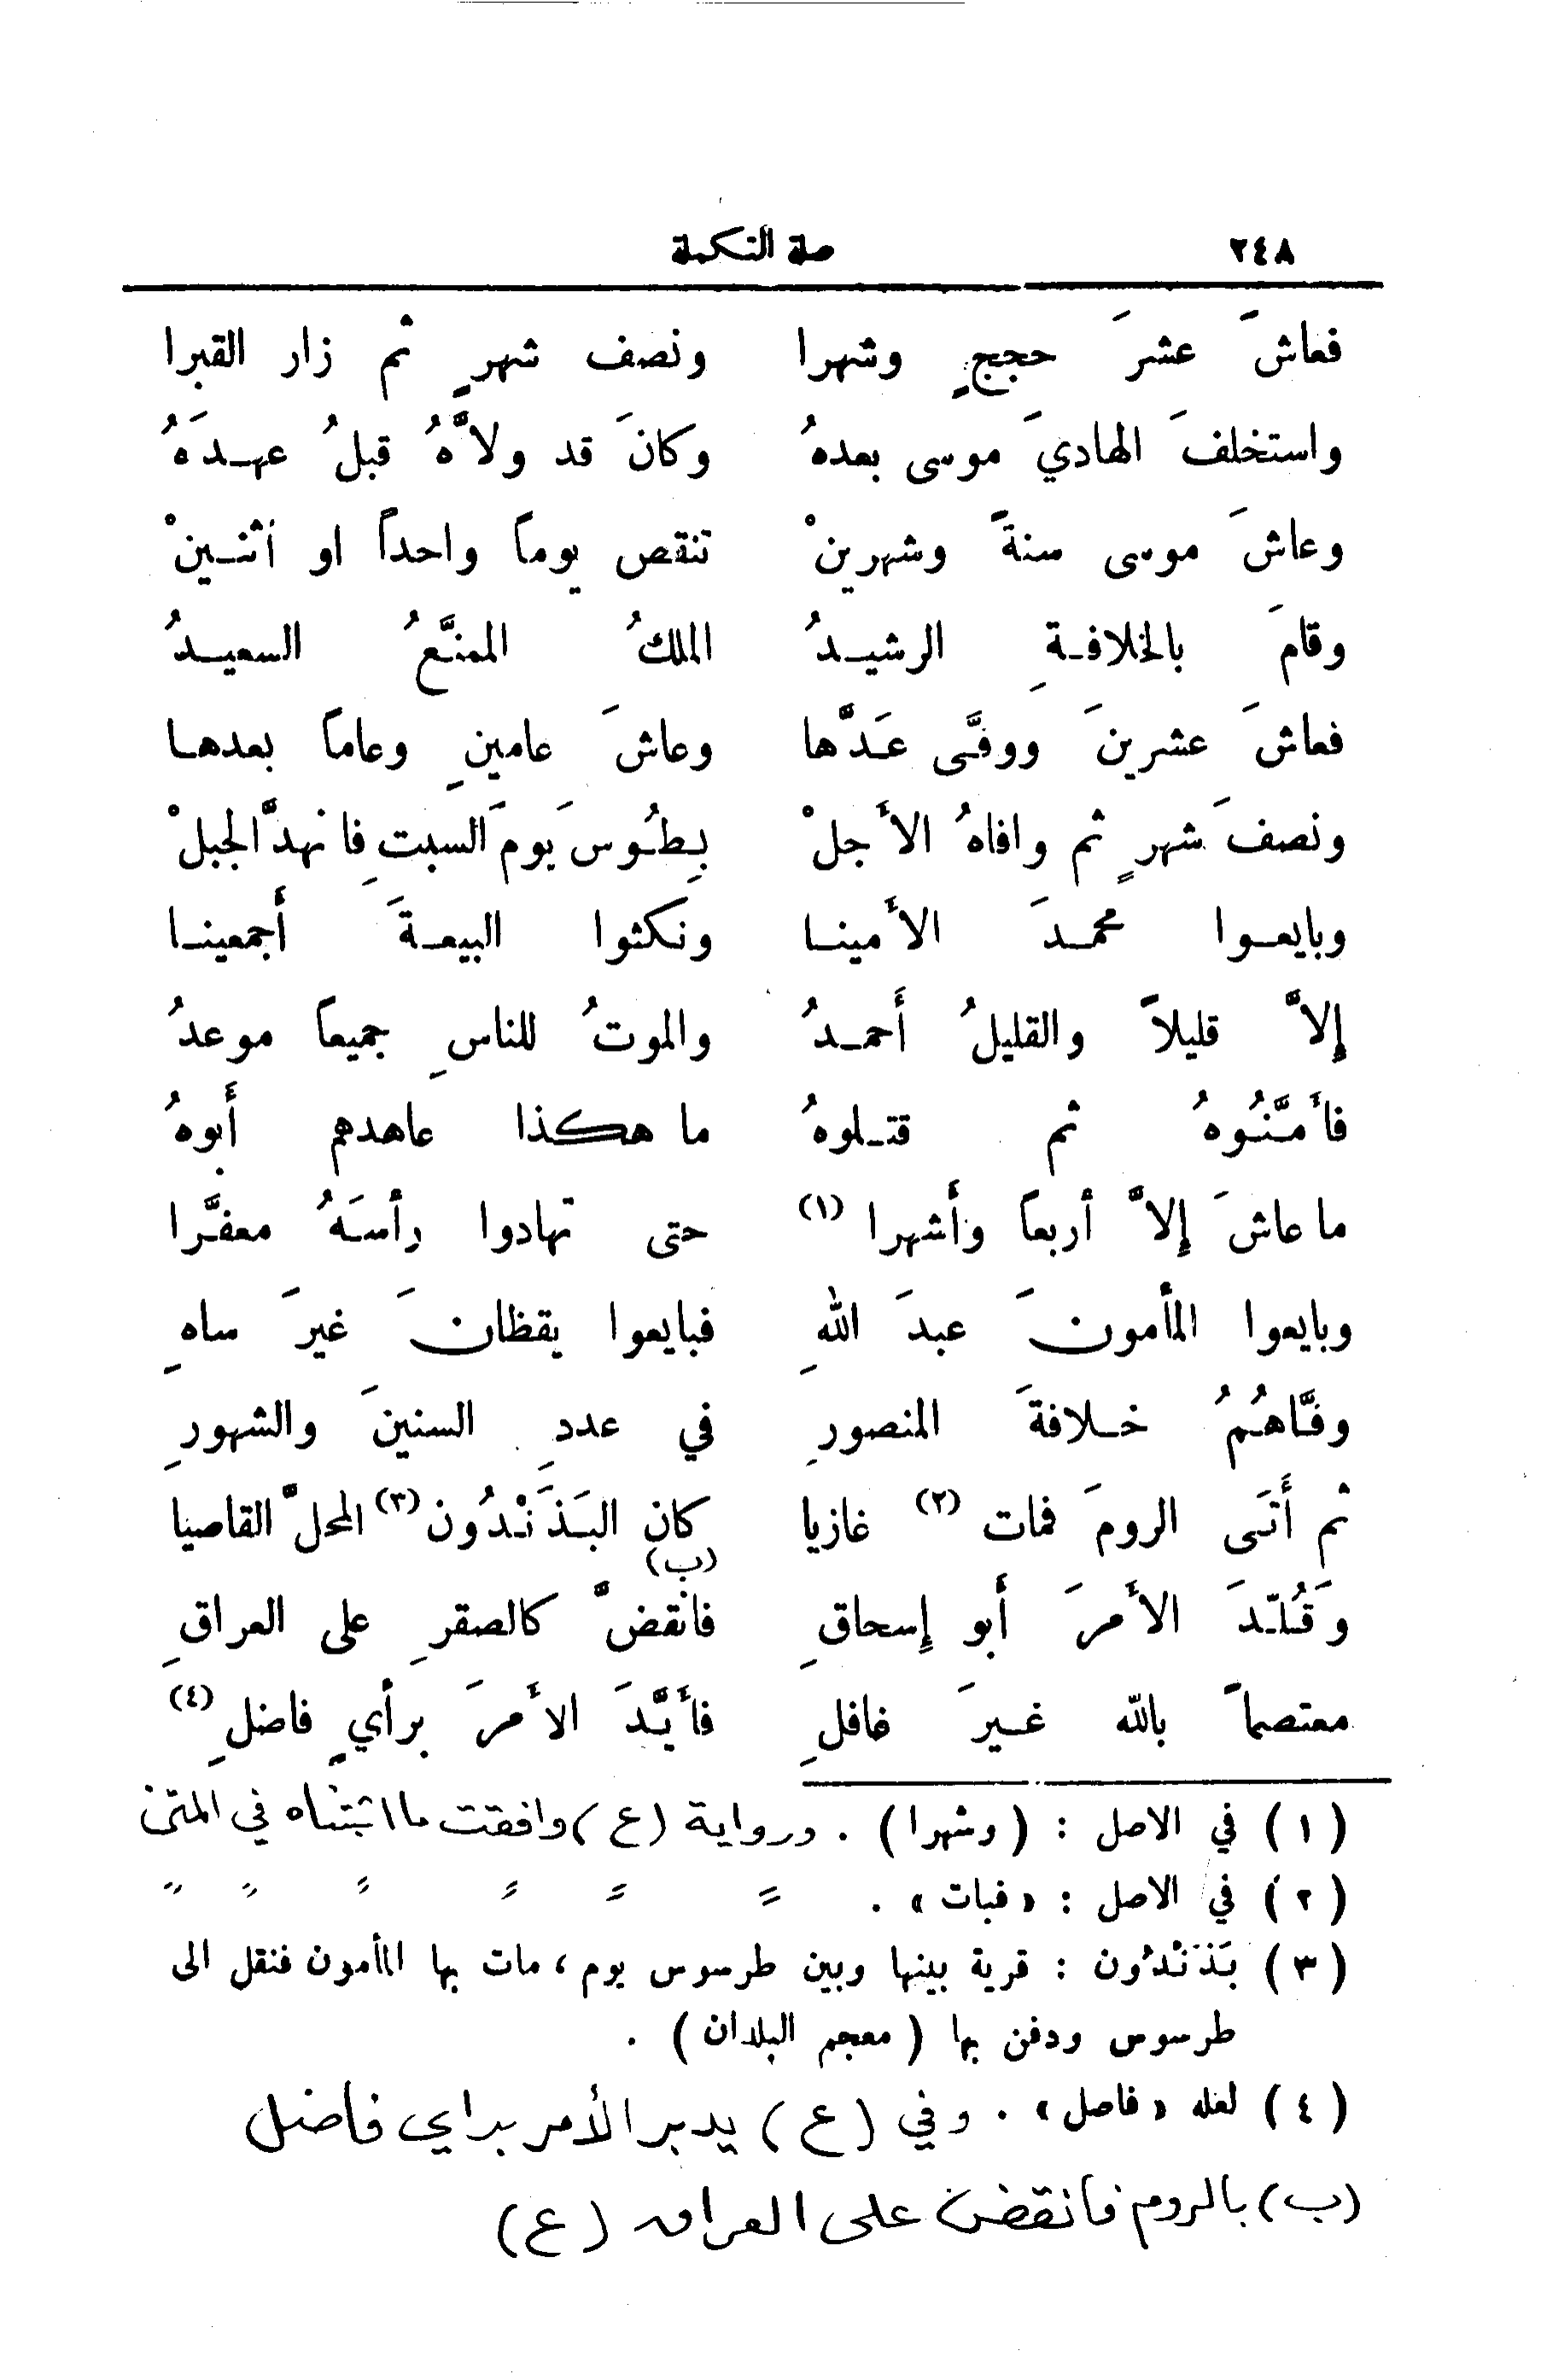 ٢٤٨ صلة التكملة
فعاشَ عشرَ حججٍ وشهرا ونصف شهرٍ ثم زار القبرا
واستخلفَ الهاديَ موسى بعدهُ وكانَ قد ولاَّهُ قبلُ عهدَهُ
وعاشَ موسى سنةً وشهرينْ تنقص يوماً واحداً او اثنينْ
وقامَ بالخلافةِ الرشيدُ الملكُ الممنَّعُ السعيدُ
فعاشَ عشرينَ ووفَّى عَدَّها وعاشَ عامينِ وعاماً بعدها
ونصفَ شهرٍ ثم وافاهُ الأَجلْ بِطُوسَ يومَ السبتِ فانهدَّ الجبلْ
وبايعوا محمدَ الأَمينا ونكثوا البيعةَ أَجمعينا
إِلاَّ قليلاً والقليلُ أَحمدُ والموتُ للناسِ جميعاً موعدُ
فأَمَّنُوهُ ثم قتلوهُ ما هكذا عاهدهم أَبوهُ
ما عاشَ إِلاَّ أَربعاً وأَشهرا (١) حتى تهادوا رأسَهُ معفَّرا
وبايعوا المأمونَ عبدَ اللهِ فبايعوا يقظانَ غيرَ ساهِ
وفَّاهُمُ خلافةَ المنصورِ في عددِ السنينَ والشهورِ
ثم أَتَى الرومَ فمات (٢) غازيا كان البَذَنْدُون (٣) المحلَّ القاصيا
وَقُلِّدَ الأَمرَ أَبو إِسحاقِ فانقضَّ (ب) كالصقرِ على العراقِ
معتصماً بالله غيرَ غافلِ فأَيَّدَ الأَمرَ برأيٍ فاضلِ (٤)
(١) في الاصل : (وشهرا) . ورواية (ع) وافقت ما اثبتناه في المتن
(٢) في الاصل : «فبات» . " " " " " " "
(٣) بَذَنْدُون : قرية بينها وبين طرسوس يوم، مات بها المأمون فنقل الى
طرسوس ودفن بها (معجم البلدان) .
(٤) لعله «فاصل» . وفي (ع) يدبر الأمر براي فاضل
(ب) بالروم فانقض على العراق (ع)